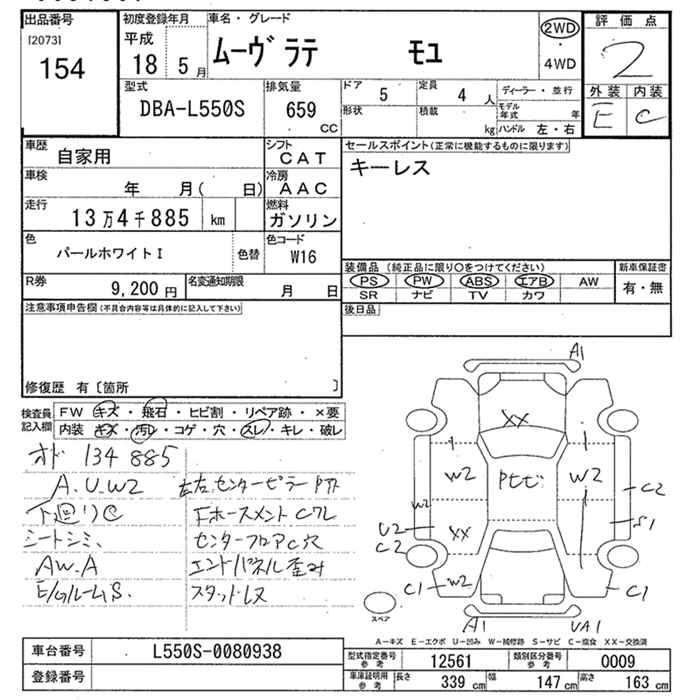 出品番号
[2073]
154
初度登録年月
平成
18 5月
車名・グレード
ムーヴ ラテ モユ
2WD
・
4WD
評価点
2
外装 内装
E C
型式
DBA-L550S
排気量
659
CC
ドア
5
定員
4人
ディーラー・並行
形状
積載
kg
モデル年式
年
ハンドル 左・右
車歴
自家用
シフト
CAT
車検
年 月( 日)
冷房
AAC
走行
13万4千885 km
燃料
ガソリン
色
パールホワイトI
色替
色コード
W16
R券
9,200円
名変通知期限
月 日
セールスポイント(正常に機能するものに限ります)
キーレス
装備品 (純正品に限り○をつけてください)
新車保証書
PS PW ABS エアB AW
SR ナビ TV カワ
有・無
後日品
注意事項申告欄(不具合内容等は具体的に記入して下さい)
修復歴 有〔箇所 〕
検査員
記入欄
FW キズ・飛石・ヒビ割・リペア跡・×要
内装 キズ・汚レ・コゲ・穴・スレ・キレ・破レ
オド 134885
A.U.W2
下廻りC
シートシミ、
AW.A
E/GルームS.
左右センターピラー
センターフロアC穴
エンドパネル歪み
スタッドレス
A1
XX
W2
Pモビ
W2
W2
U2
C2
XX
C2
S1
C1
W2
C1
A1
UA1
スペア
A-キズ E-エクボ U-凹み W-補修跡 S-サビ C-腐食 XX-交換済
車台番号
L550S-0080938
登録番号
型式指定番号
参考
12561
類別区分番号
参考
0009
車庫証明用
参考
長さ
339 cm
幅
147 cm
高さ
163 cm